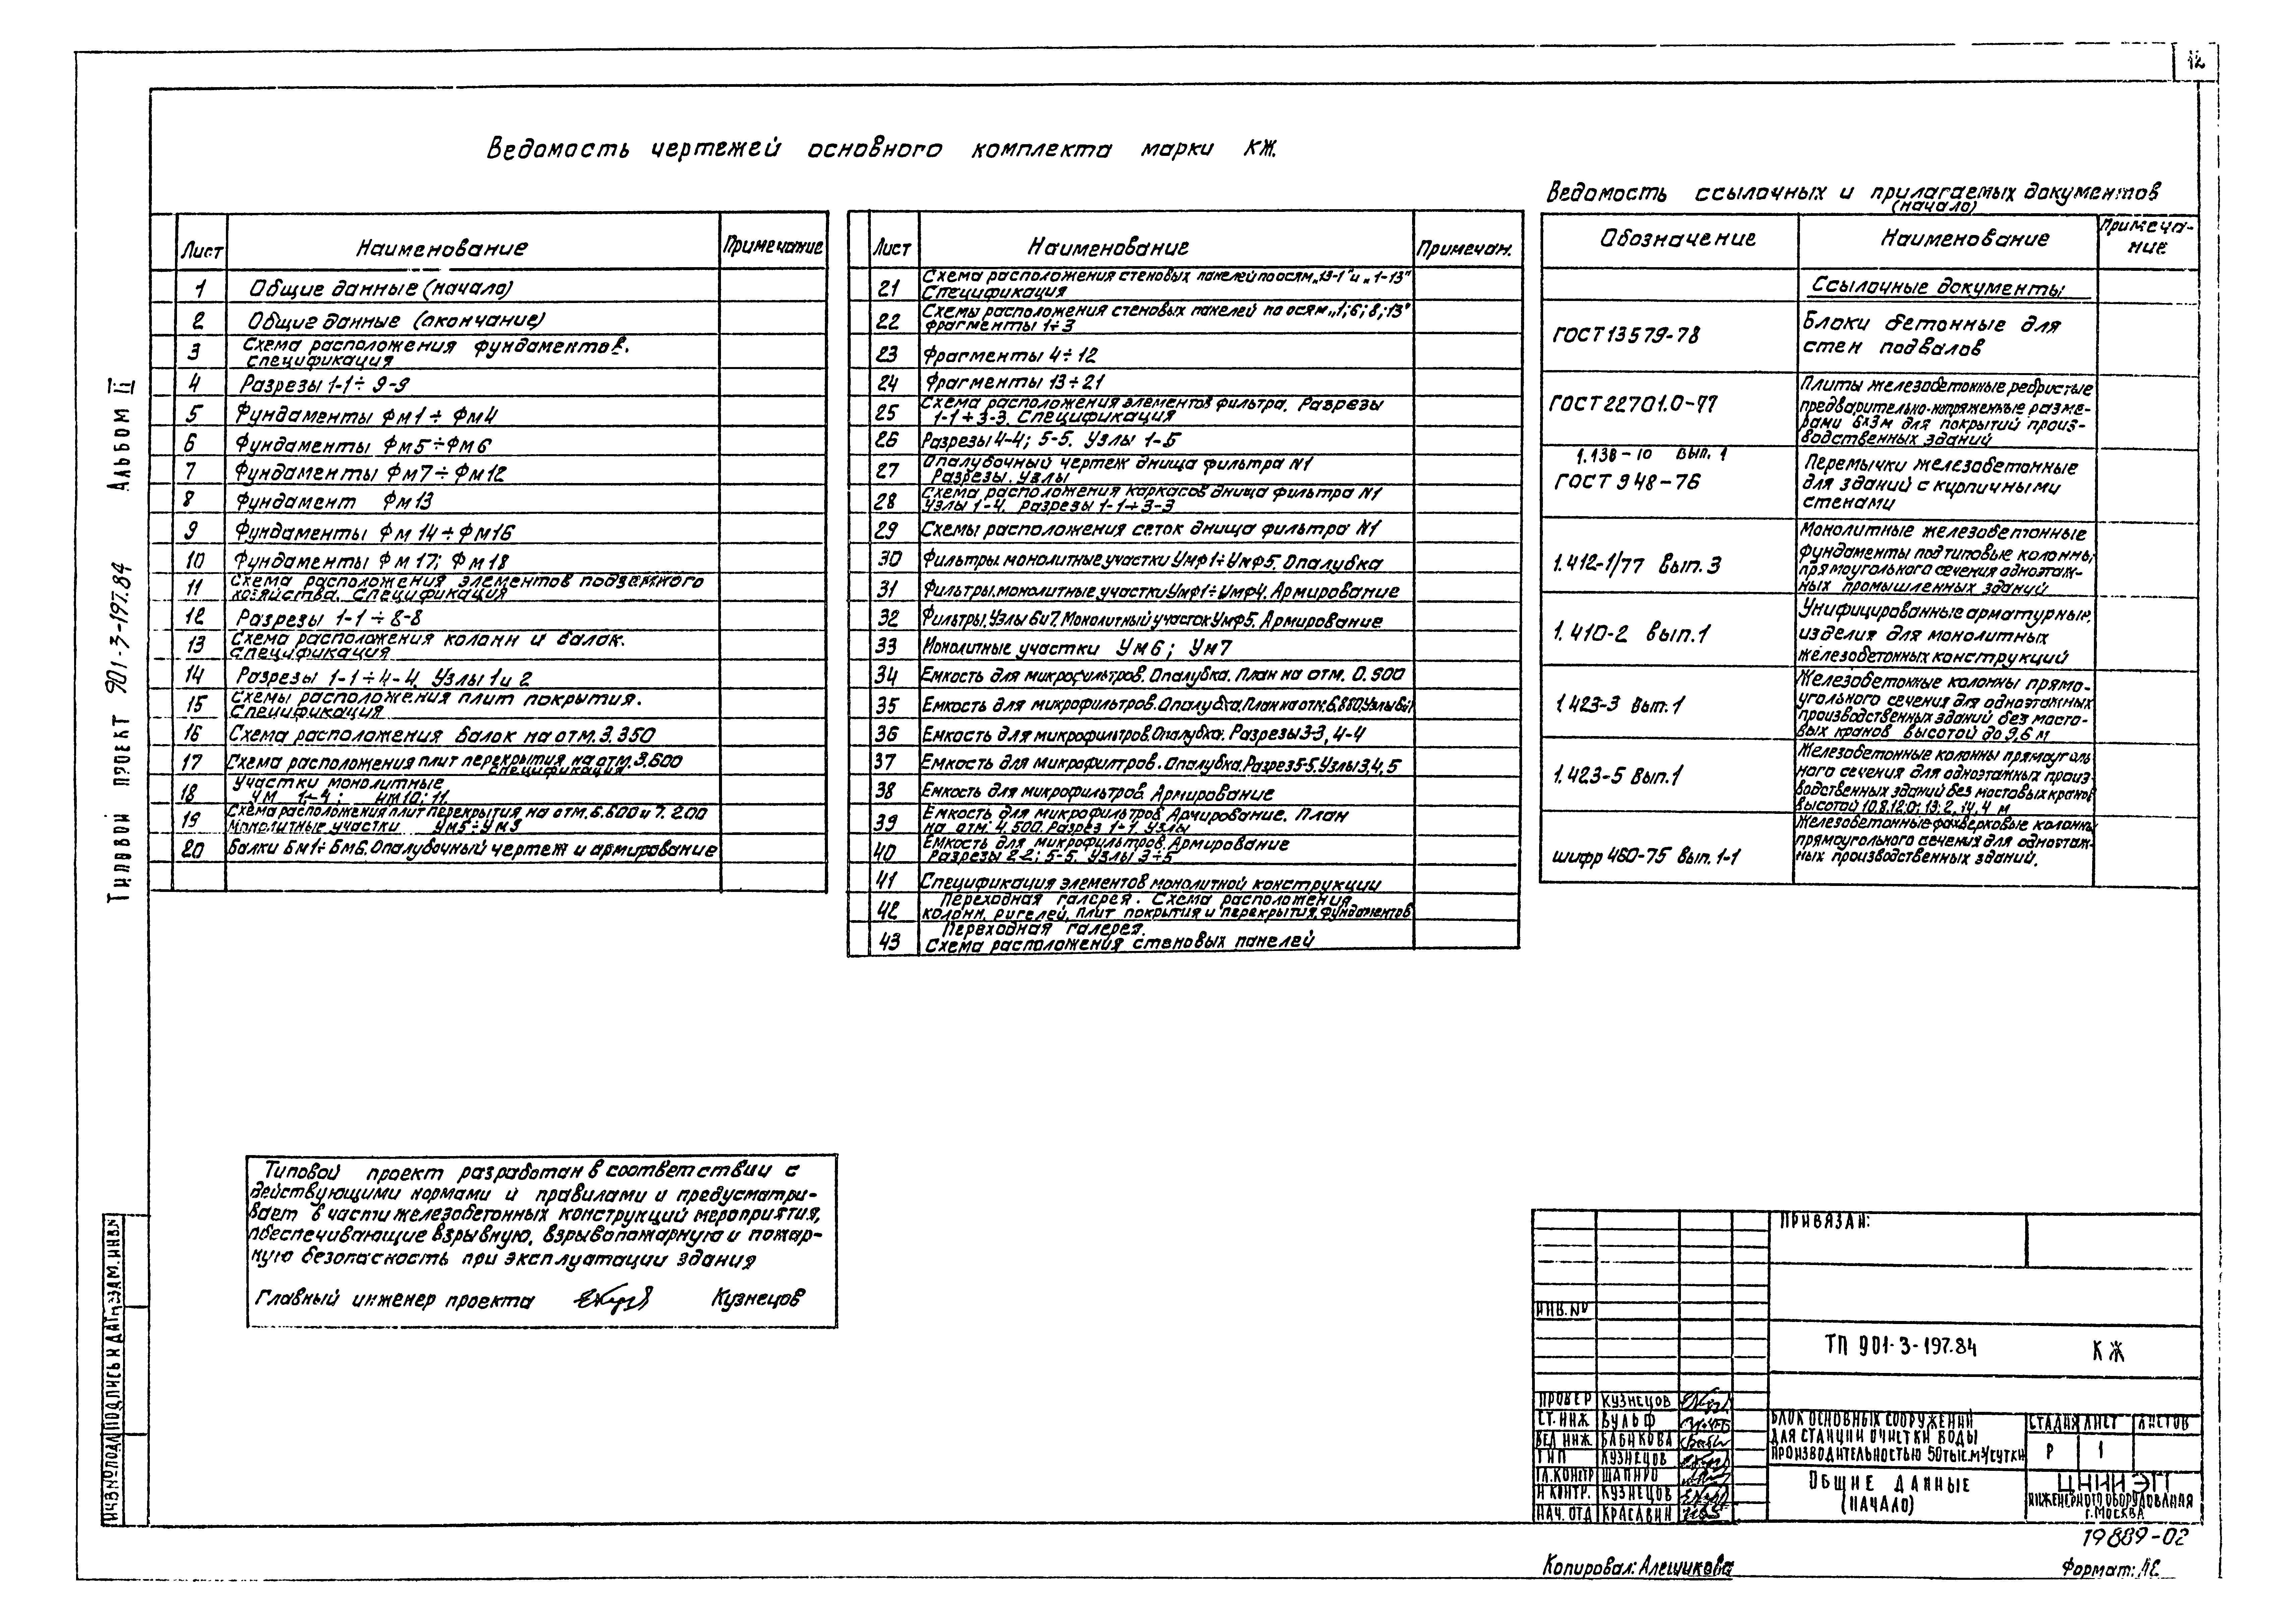 12
Ведомость чертежей основного комплекта марки КЖ.
Лист Наименование Примечание
1 Общие данные (начало)
2 Общие данные (окончание)
3 Схема расположения фундаментов.
Спецификация
4 Разрезы 1-1÷9-9
5 Фундаменты Фм1÷Фм4
6 Фундаменты Фм5÷Фм6
7 Фундаменты Фм7÷Фм12
8 Фундамент Фм13
9 Фундаменты Фм14÷Фм16
10 Фундаменты Фм17; Фм18
11 Схема расположения элементов подземного
хозяйства. Спецификация
12 Разрезы 1-1÷8-8
13 Схема расположения колонн и балок.
Спецификация
14 Разрезы 1-1÷4-4. Узлы 1 и 2
15 Схемы расположения плит покрытия.
Спецификация
16 Схема расположения балок на отм. 3.350
17 Схема расположения плит перекрытия на отм. 3.600
спецификация
18 Участки монолитные
УМ 1÷4; Ум10; 11
19 Схема расположения плит перекрытия на отм. 6.600 и 7.200
Монолитные участки Ум5÷Ум9
20 Балки Бм1÷Бм6. Опалубочный чертеж и армирование
Лист Наименование Примечан.
21 Схема расположения стеновых панелей по осям „13-1" и „1-13"
Спецификация
22 Схемы расположения стеновых панелей по осям „1; 6; 8; 13"
Фрагменты 1÷3
23 Фрагменты 4÷12
24 Фрагменты 13÷21
25 Схема расположения элементов фильтра. Разрезы
1-1÷3-3. Спецификация
26 Разрезы 4-4; 5-5. Узлы 1-5
27 Опалубочный чертеж днища фильтра N1
Разрезы. Узлы
28 Схема расположения каркасов днища фильтра N1
Узлы 1-4. Разрезы 1-1÷3-3
29 Схемы расположения сеток днища фильтра N1
30 Фильтры. монолитные участки Умф1÷Умф5. Опалубка
31 Фильтры. монолитные участки Умф1÷Умф4. Армирование
32 Фильтры. Узлы 6 и 7. Монолитный участок Умф5. Армирование
33 Монолитные участки Ум6; Ум7
34 Емкость для микрофильтров. Опалубка. План на отм. 0.500
35 Емкость для микрофильтров. Опалубка. План на отм. 6.880 Узлы
36 Емкость для микрофильтров. Опалубка. Разрезы 3-3, 4-4
37 Емкость для микрофилтров. Опалубка. Разрез 5-5. Узлы 3, 4, 5
38 Емкость для микрофильтров. Армирование
39 Емкость для микрофильтров Армирование. План
на отм. 4.500. Разрез 1-1. Узлы
40 Емкость для микрофильтров. Армирование
Разрезы 2-2; 5-5. Узлы 3÷5
41 Спецификация элементов монолитной конструкции
42 Переходная галерея. Схема расположения
колонн, ригелей, плит покрытия и перекрытия, фундаментов
43 Переходная галерея.
Схема расположения стеновых панелей
Ведомость ссылочных и прилагаемых документов
(начало)
Обозначение Наименование Примеча-
ние
Ссылочные документы
ГОСТ 13579-78 Блоки бетонные для
стен подвалов
ГОСТ 22701.0-77 Плиты железобетонные ребристые
предварительно-напряженные разме-
рами 6х3м для покрытий произ-
водственных зданий
1.138-10 вып. 1
ГОСТ 948-76 Перемычки железобетонные
для зданий с кирпичными
стенами
1.412-1/77 Вып. 3 Монолитные железобетонные
фундаменты под типовые колонны
прямоугольного сечения одноэтаж-
ных промышленных зданий
1.410-2 вып. 1 Унифицированные арматурные
изделия для монолитных
железобетонных конструкций
1.423-3 вып. 1 Железобетонные колонны прямо-
угольного сечения для одноэтажных
производственных зданий без мосто-
вых кранов высотой до 9,6 м
1.423-5 вып. 1 Железобетонные колонны прямоуголь
ного сечения для одноэтажных произ-
водственных зданий без мостовых кранов
высотой 10.8, 12.0; 13.2, 14,4 м
шифр 460-75 Вып. 1-1 Железобетонные фахверковые колонны
прямоугольного сечения для одноэтаж-
ных производственных зданий.
Типовой проект 901-3-197.84 Альбом II
Типовой проект разработан в соответствии с
действующими нормами и правилами и предусматри-
вает в части железобетонных конструкций мероприятия,
обеспечивающие взрывную, взрывопожарную и пожар-
ную безопасность при эксплуатации здания
Главный инженер проекта Кузнецов
ИНВ.N ПОДЛ ПОДПИСЬ И ДАТА ВЗАМ. ИНВ.N
ПРИВЯЗАН:
ИНВ. №
ТП 901-3-197.84 КЖ
ПРОВЕР КУЗНЕЦОВ
СТ. ИНЖ ВУЛЬФ
ВЕД ИНЖ. БАБИКОВА
ГИП КУЗНЕЦОВ
ГЛ. КОНСТР ШАПИРО
Н КОНТР. КУЗНЕЦОВ
НАЧ. ОТД КРАСАВИН
БЛОК ОСНОВНЫХ СООРУЖЕНИЙ
ДЛЯ СТАНЦИИ ОЧИСТКИ ВОДЫ
ПРОИЗВОДИТЕЛЬНОСТЬЮ 50 ТЫС. М³/СУТКИ
СТАДИЯ ЛИСТ ЛИСТОВ
Р 1
ОБЩИЕ ДАННЫЕ
(НАЧАЛО)
ЦНИИЭП
ИНЖЕНЕРНОГО ОБОРУДОВАНИЯ
Г. МОСКВА
19889-02
Копировал: Алешикова
Формат: А2